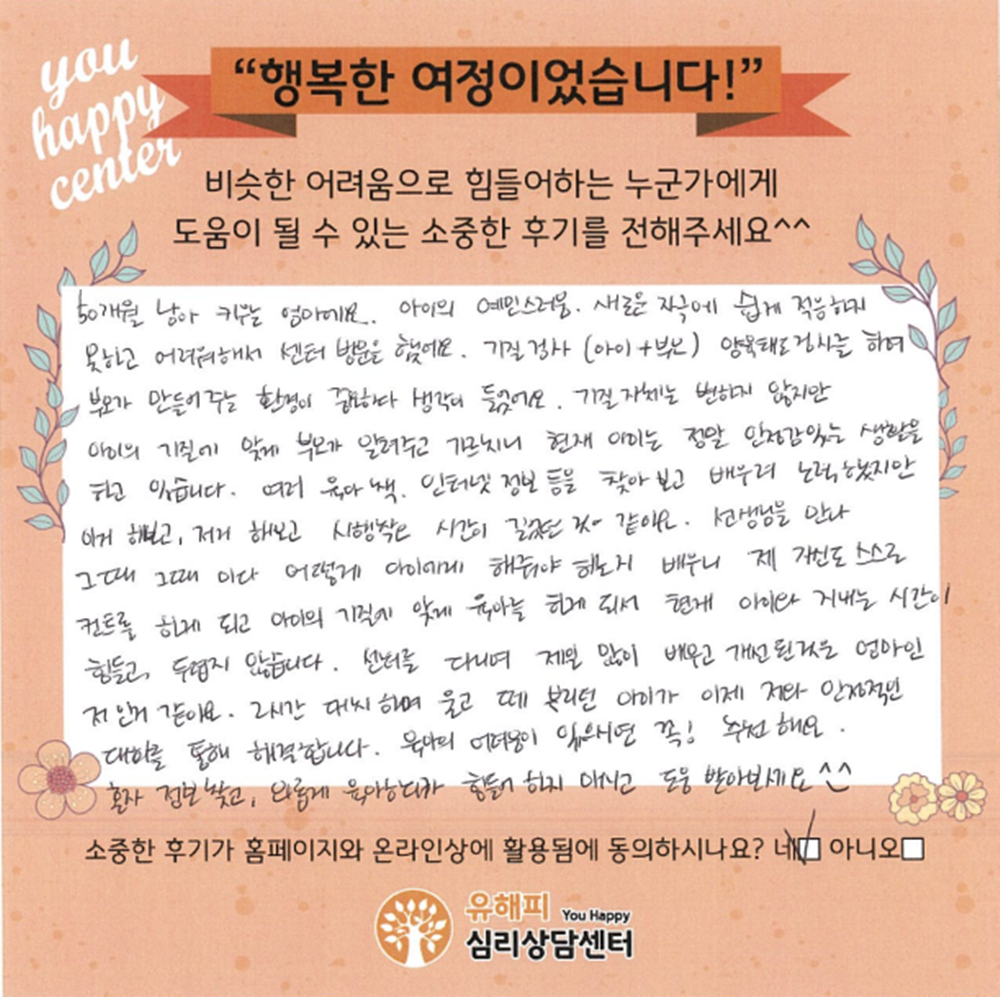 you
happy
center
“행복한 여정이었습니다!”
비슷한 어려움으로 힘들어하는 누군가에게
도움이 될 수 있는 소중한 후기를 전해주세요^^
30개월 남아 키우는 엄마예요. 아이의 예민스러움. 새로운 자극에 쉽게 적응하지
못하고 어려워해서 센터 방문을 했어요. 기질검사 (아이+부모) 양육태도 검사를 하며
부모가 만들어 주는 환경이 중요하다 생각이 들었어요. 기질 자체는 변하지 않지만
아이의 기질에 맞게 부모가 알려주고 기르치니 현재 아이는 정말 안정감있는 생활을
하고 있습니다. 여러 육아 책. 인터넷 정보 등을 찾아 보고 배우려 노력했지만
이거 해보고, 저거 해보고 시행착오 시간이 길었던 것 같아요. 선생님을 만나
그때 그때 마다 어떻게 아이에게 해줘야 하는지 배우니 제 자신도 스스로
컨트롤 하게 되고 아이의 기질에 맞게 육아를 하게 되서 현재 아이와 지내는 시간이
힘들고, 두렵지 않습니다. 센터를 다니며 제일 많이 배우고 개선된것은 엄마인
저 인거 같아요. 2시간 대치하며 울고 떼 부리던 아이가 이제 저와 안정적인
대화를 통해 해결합니다. 육아의 어려움이 있으시면 꼭! 추천 해요.
혼자 정보 찾고, 외롭게 육아하다가 힘들어 하지 마시고 도움 받아보세요^^
소중한 후기가 홈페이지와 온라인상에 활용됨에 동의하시나요? 네 아니오
유해피 You Happy
심리상담센터